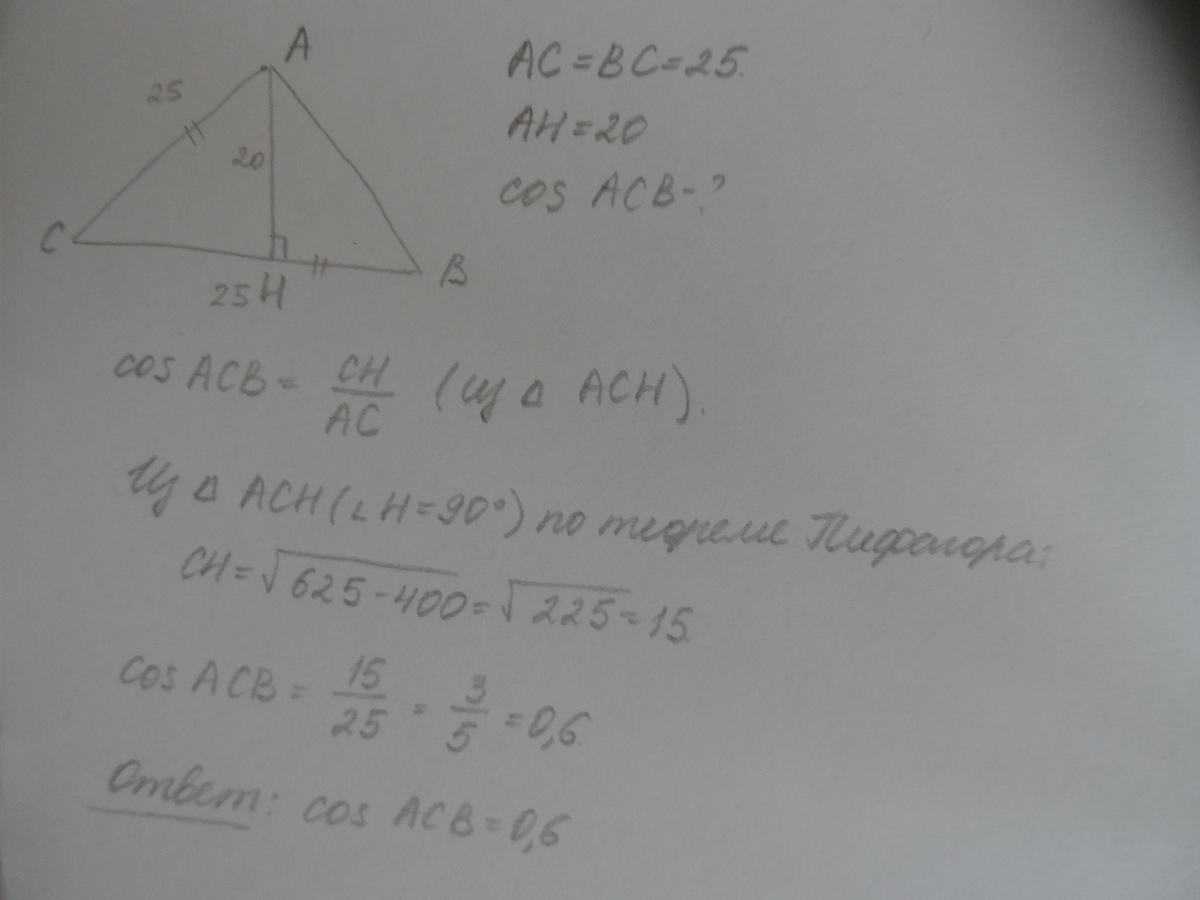 A
25
20
C
25 H
B
AC = BC = 25.
AH = 20
cos ACB - ?
cos ACB = CH/AC (из Δ ACH).
Из Δ ACH (∠H = 90°) по теореме Пифагора:
CH = √625 - 400 = √225 = 15.
cos ACB = 15/25 = 3/5 = 0,6.
Ответ: cos ACB = 0,6